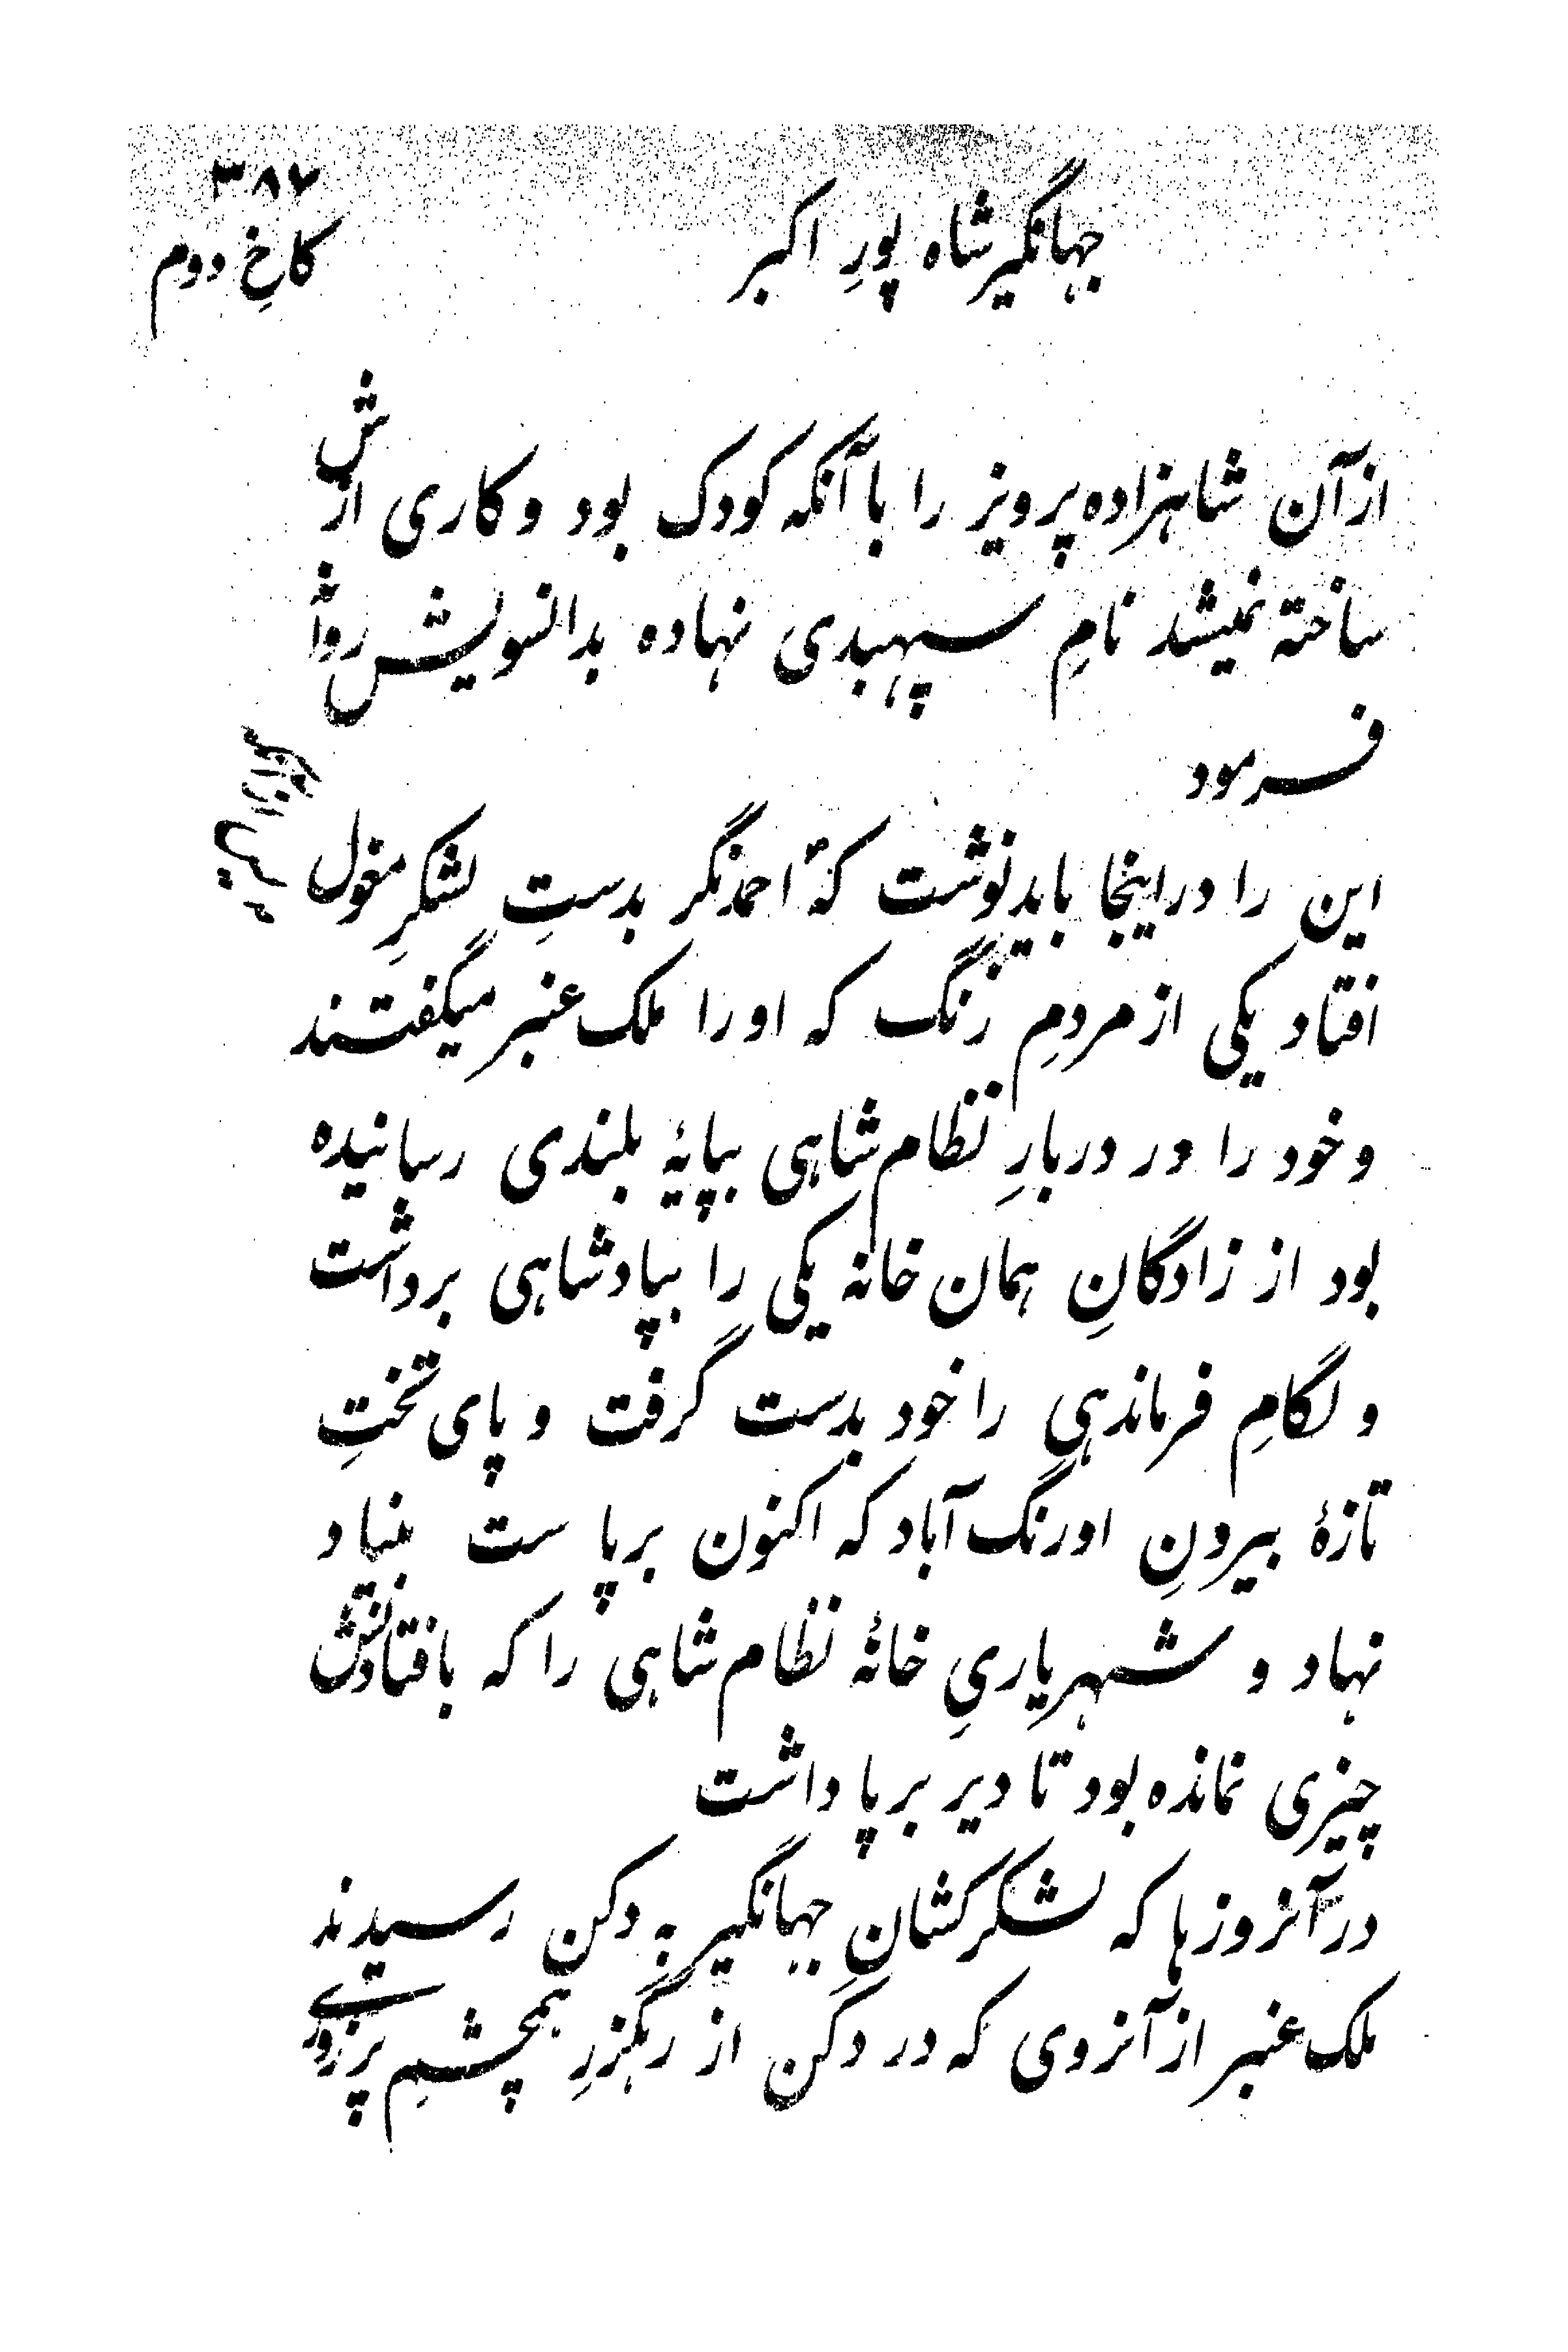 ۳۸۷
جهانگیر شاه پورِ اکبر
کاخِ دوم
از آن شاهزاده پرویز را با آنکه کودک بود و کاری ازش
ساخته نمیشد نامِ سپهبدی نهاده بدانسویش روان
فرمود
این را در اینجا باید نوشت که احمدنگر بدستِ لشکرِ مغول
افتاد یکی از مردمِ زنگ که او را ملک عنبر میگفتند
و خود را در دربارِ نظام شاهی بپایهٔ بلندی رسانیده
بود از زادگانِ همان خانه یکی را بپادشاهی برداشت
و لگامِ فرماندهی را خود بدست گرفت و پای تختِ
تازهٔ بیرونِ اورنگ آباد که اکنون برپا ست بنیاد
نهاد و شهریاریِ خانهٔ نظام شاهی را که بافتادنش
چیزی نمانده بود تا دیر برپا داشت
در آنروزها که لشکرکشانِ جهانگیر به دکن رسیدند
ملک عنبر از آنروی که در دکن از رهگزرِ همچشمِ پرزوری